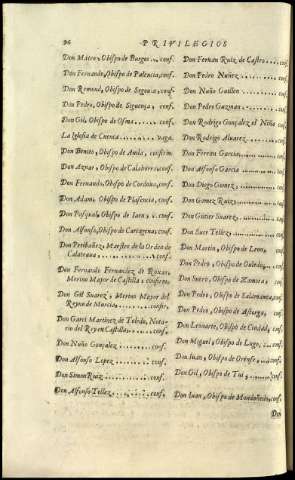 96 PRIVILEGIOS
Don Mateo, Obispo de Burgos ... conf.
Don Fernando, Obispo de Palencia, conf.
Don Remond, Obispo de Segouia, conf.
Don Pedro, Obispo de Siguença, conf.
Don Gil, Obispo de Osma, ..... conf.
La Iglesia de Cuenca ....... vaga.
Don Benito, Obispo de Auila, confirm.
Don Aznar, Obispo de Calahorra, conf.
Don Fernando, Obispo de Cordoua, conf.
Don Adam, Obispo de Plasencia, conf.
Don Pasqual, Obispo de Iaen, .. conf.
Don Alfonso, Obispo de Cartagena, conf.
Don Peribañez, Maestre de la Orden de
Calatraua ................ conf.
Don Fernando Fernandez de
Merino Mayor de Castilla, confirm.
Don Gil Suarez, Merino Mayor del
Reyno de Murcia ........ conf.
Don Garci Martinez de Toledo, Nota-
rio del Rey en Castilla ...... conf.
Don Nuño Gonçalez ........ conf.
Don Alfonso Lopez ......... conf.
Don Simon Ruiz .......... conf.
Don Alfonso Tellez ........ conf.
Don Fernan Ruiz de Castro ... conf.
Don Pedro Nuñez ......... conf.
Don Nuño Guillen ........ conf.
Don Pedro Guzman ....... conf.
Don Rodrigo Gonçalez el Niño conf.
Don Rodrigo Aluarez ...... conf.
Don Ferrin Garcia ........ conf.
Don Alfonso Garcia ....... conf.
Don Diego Gomez ........ conf.
Don Gomez Ruiz ......... conf.
Don Gutier Suarez ........ conf.
Don Suer Tellez .......... conf.
Don Martin, Obispo de Leon, conf.
Don Pedro, Obispo de Ouiedo, conf.
Don Suero, Obispo de Zamora, conf.
Don Pedro, Obispo de Salamanca, conf.
Don Pedro, Obispo de Astorga, conf.
Don Leonarte, Obispo de Ciudad, conf.
Don Miguel, Obispo de Lugo, .. conf.
Don Iuan, Obispo de Orense, .. conf.
Don Gil, Obispo de Tui, .... conf.
Don Iuan, Obispo de Mondoñedo, conf.
Don